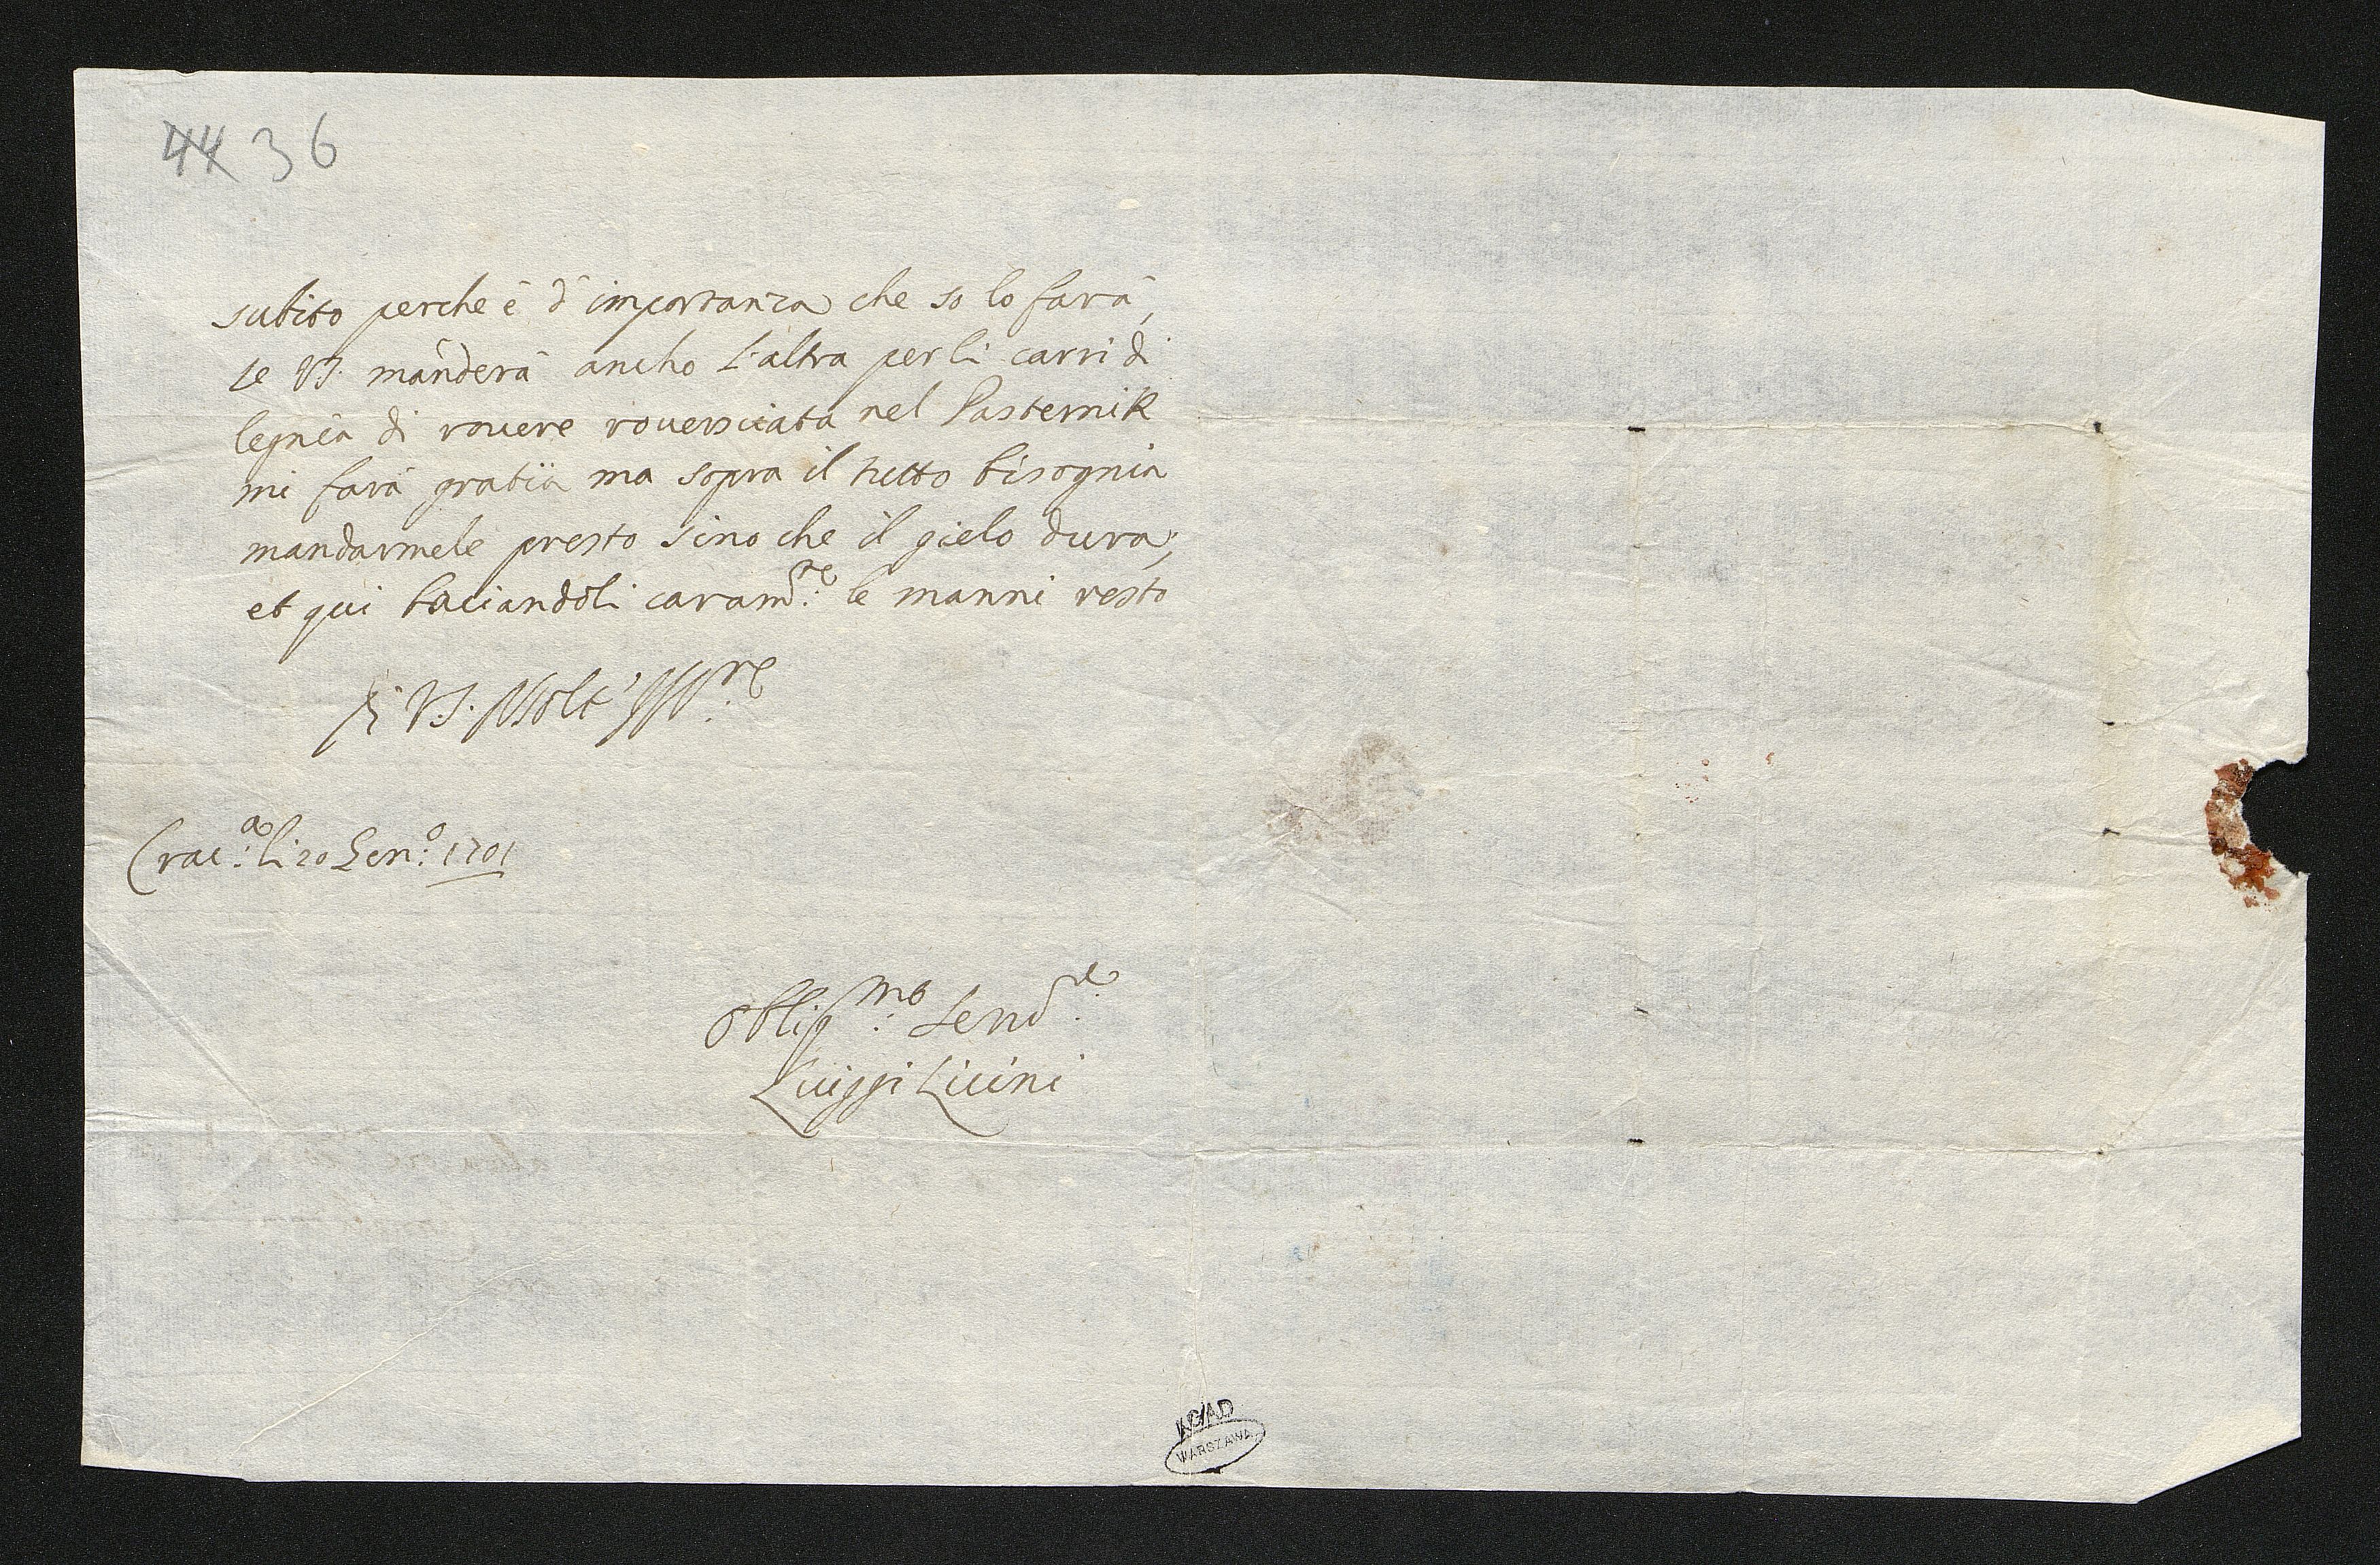 44 36
subito perche è d'importanza che so lo farà,
se VS. manderà ancho l'altra per li carri di
legnia di rovere roversciata nel Pasternik
mi farà gratia ma sopra il tutto bisognia
mandarmele presto sino che il gielo dura;
et qui baciandoli caram.te le manni resto
Di VS. Molt' Ill.re
Crac.a li 20 Gen.o 1701
Oblig.mo Serv.re
Luiggi Licini
AGAD
WARSZAWA